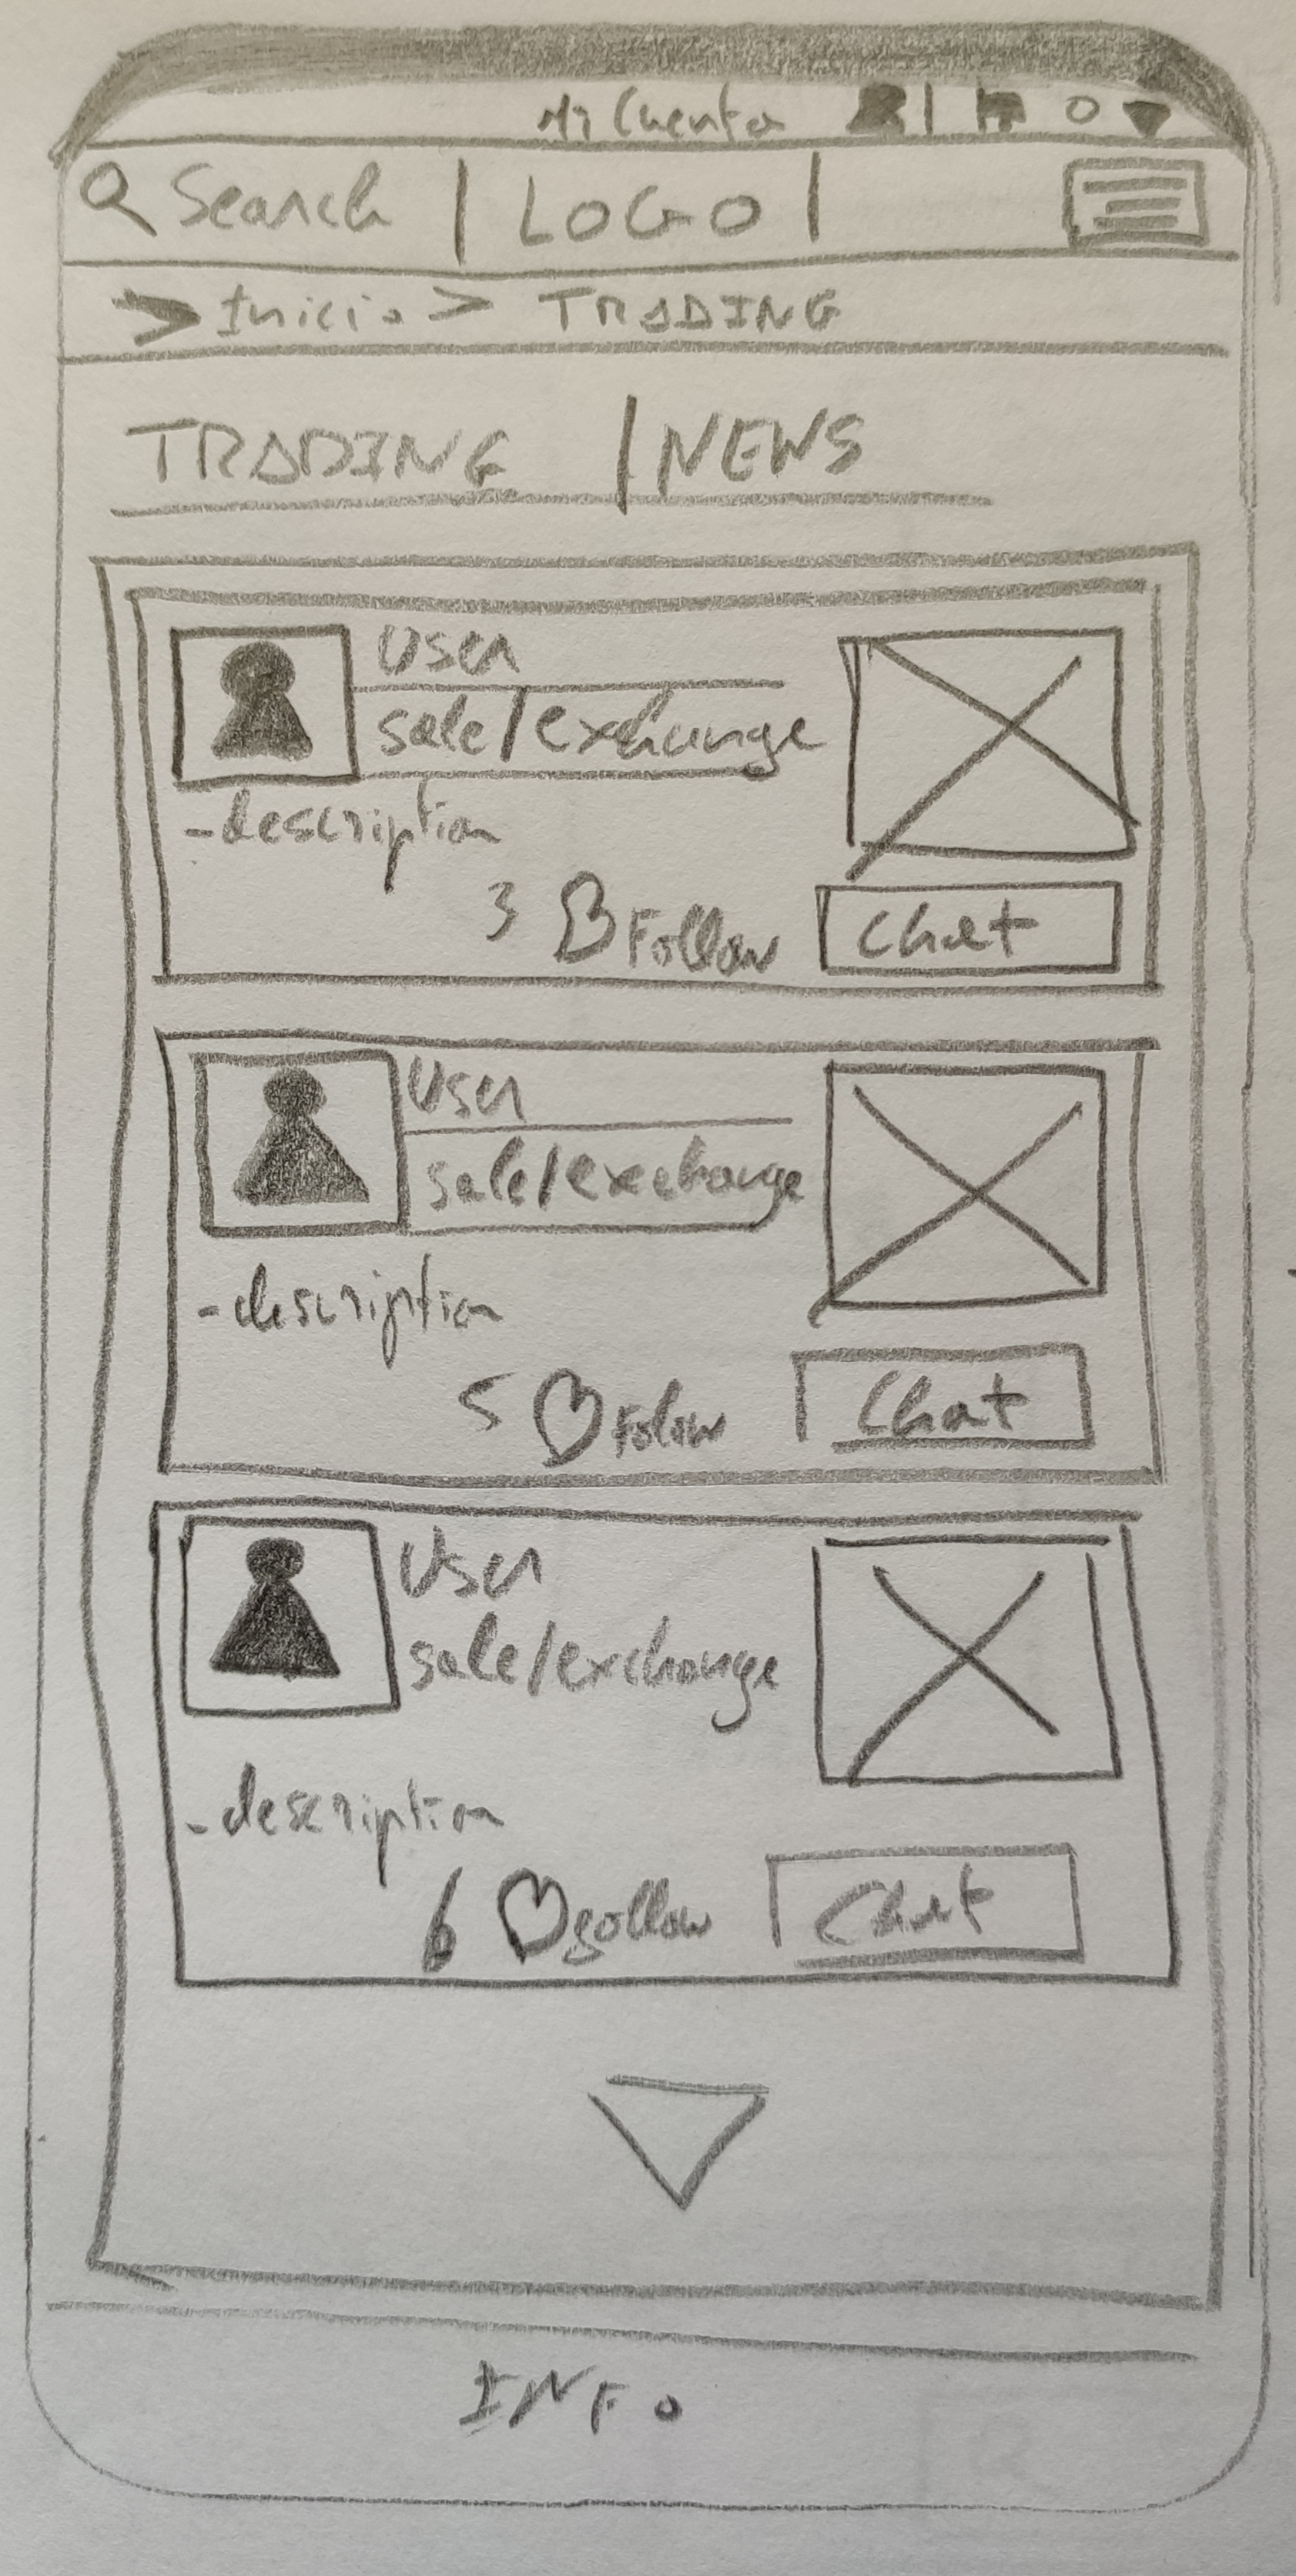 Mi Cuenta | 0
Search | LOGO |
> Inicio > TRADING
TRADING | NEWS
User
sale/exchange
-description
3 Follow Chat
User
sale/exchange
-description
5 Follow Chat
User
sale/exchange
-description
6 follow Chat
INFO